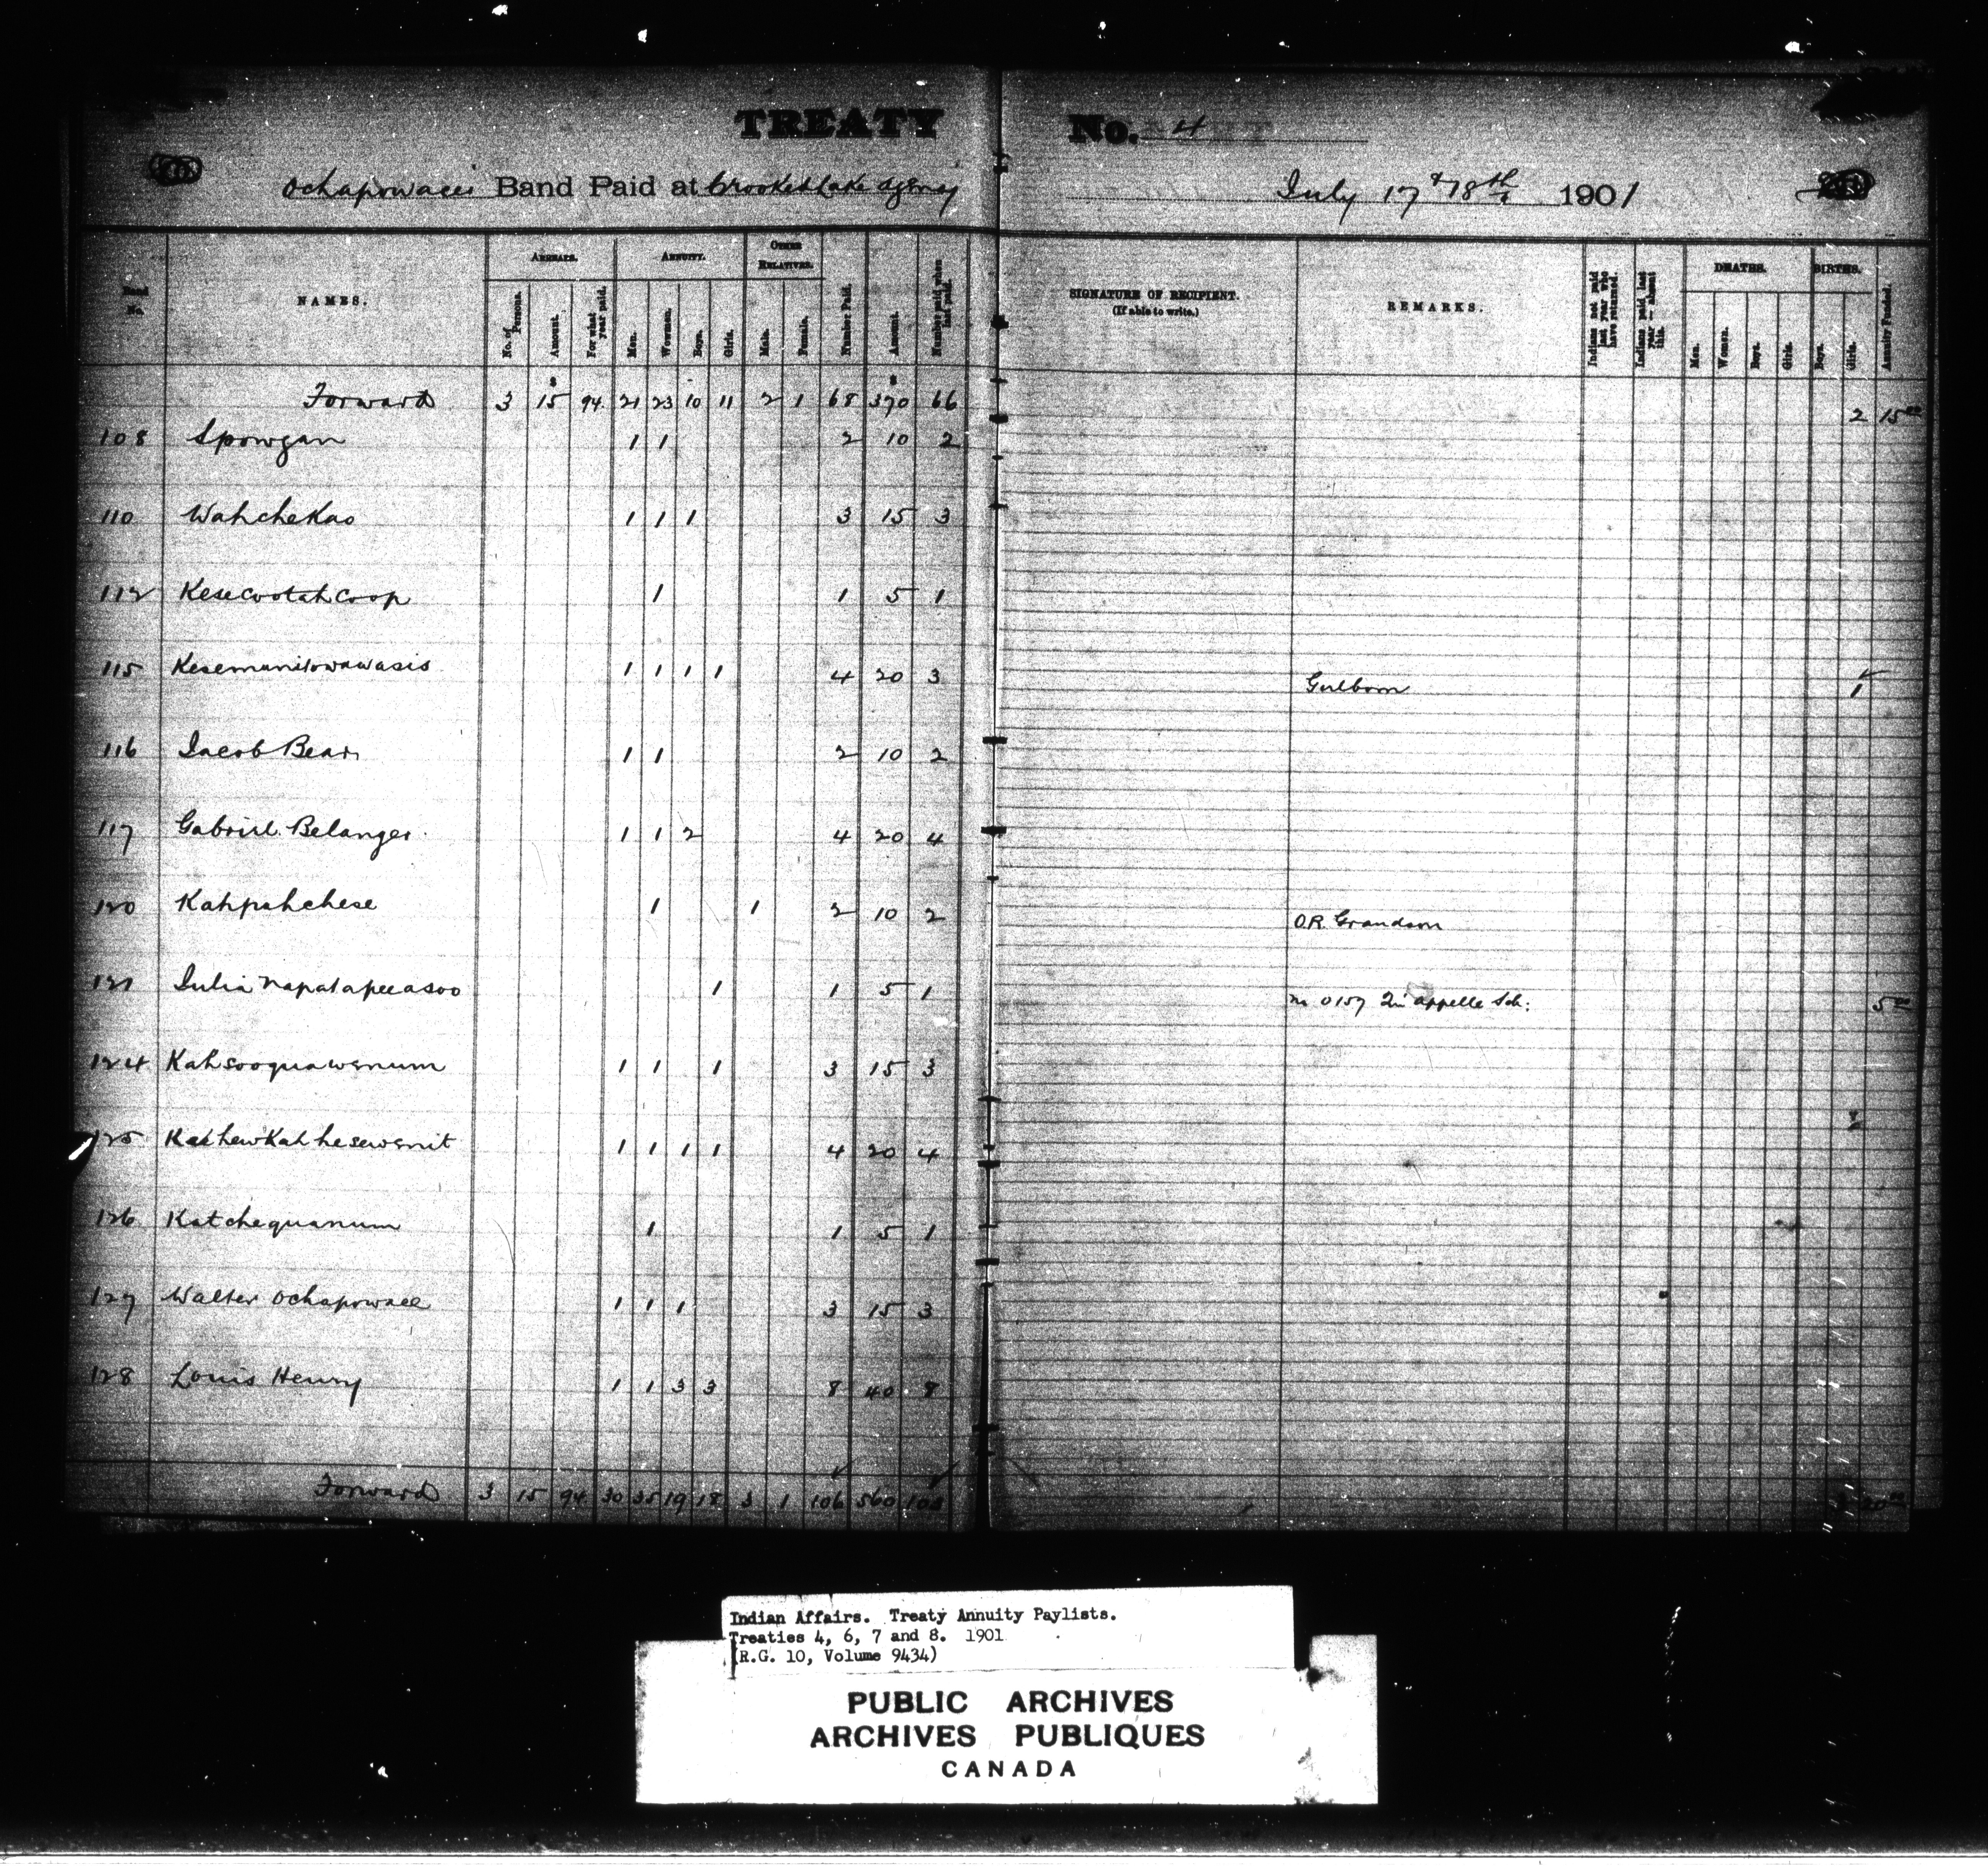 TREATY No. 4
Ochapowace's Band Paid at Crooked Lake Agency July 17 & 18th 1901
Band No.
NAMES.
ARREARS.
No. of Persons.
Amount.
For what year paid.
ANNUITY.
Men.
Women.
Boys.
Girls.
OTHER RELATIVES.
Male.
Female.
Number Paid.
Amount.
Number paid when last paid.
SIGNATURE OF RECIPIENT.
(If able to write.)
REMARKS.
Indians not paid last year who have returned.
Indians paid last year — absent this.
DEATHS.
Men.
Women.
Boys.
Girls.
BIRTHS.
Boys.
Girls.
Annuity Funded.
Forward 3 15 94 21 23 10 11 2 1 68 370 66 2 15 00
108 Spowgan 1 1 2 10 2
110 Wahchekao 1 1 1 3 15 3
112 Kesecootahcoop 1 1 5 1
115 Kesemanitowawasis 1 1 1 1 4 20 3 Girl born 1
116 Jacob Bear 1 1 2 10 2
117 Gabriel Belanger 1 1 2 4 20 4
120 Kahpahchese 1 1 2 10 2 O.R. Grandson
121 Julia Napatapeeasoo 1 1 5 1 No 0157 Qu'appelle Sch: 5 00
124 Kahsooquawenum 1 1 1 3 15 3
125 Kashewkahhesewenit 1 1 1 1 4 20 4
126 Katchequanum 1 1 5 1
127 Walter Ochapowace 1 1 1 3 15 3
128 Louis Henry 1 1 3 3 8 40 8
Forward 3 15 94 30 35 19 18 3 1 106 560 20 00
Indian Affairs. Treaty Annuity Paylists.
Treaties 4, 6, 7 and 8. 1901
(R.G. 10, Volume 9434)
PUBLIC ARCHIVES
ARCHIVES PUBLIQUES
CANADA